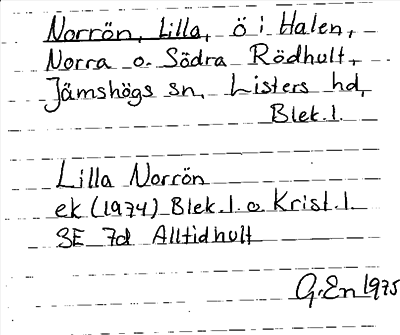 Norrön, Lilla, ö i Halen,
Norra o. Södra Rödhult,
Jämshögs sn, Listers hd,
Blek. l.
Lilla Norrön
ek (1974) Blek. l. o. Krist. l.
3E 7d Alltidhult
G. En 1975